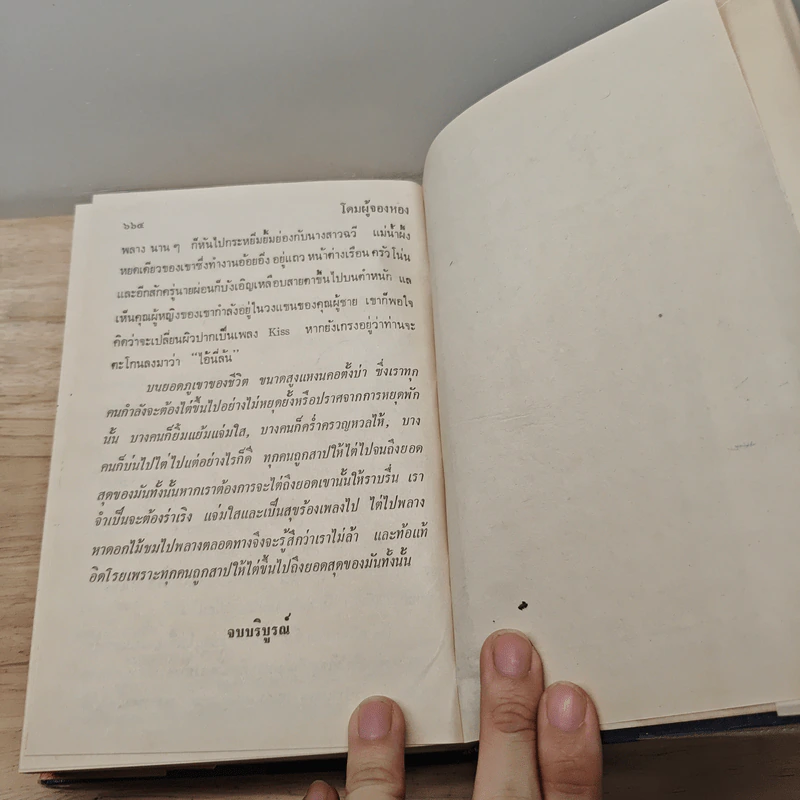 โดมผู้จองหอง
๖๖๔
พลาง นาน ๆ ก็หันไปกระหยิ่มยิ้มย่องกับนางสาวฉวี แม่น้ำผึ้ง
หยดเดียวของเขาซึ่งทำงานอ้อยอิ่ง อยู่แถว หน้าต่างเรือน ครัวโน่น
และอีกสักครู่นายผ่อนก็บังเอิญเหลือบสายตาขึ้นไปบนตำหนัก แล
เห็นคุณผู้หญิงของเขากำลังอยู่ในวงแขนของคุณผู้ชาย เขาก็พอใจ
คิดว่าจะเปลี่ยนผิวปากเป็นเพลง Kiss หากยังเกรงอยู่ว่าท่านจะ
ตะโกนลงมาว่า “ไอ้นี่ล้น”
บนยอดภูเขาของชีวิต ขนาดสูงแหงนคอตั้งบ่า ซึ่งเราทุก
คนกำลังจะต้องไต่ขึ้นไปอย่างไม่หยุดยั้งหรือปราศจากการหยุดพัก
นั้น บางคนก็ยิ้มแย้มแจ่มใส, บางคนก็คร่ำครวญหวลไห้, บาง
คนก็บ่นไปไต่ไปแต่อย่างไรก็ดี ทุกคนถูกสาปให้ไต่ไปจนถึงยอด
สุดของมันทั้งนั้นหากเราต้องการจะไต่ถึงยอดเขานั้นให้ราบรื่น เรา
จำเป็นจะต้องร่าเริง แจ่มใสและเป็นสุขร้องเพลงไป ไต่ไปพลาง
หาดอกไม้ชมไปพลางตลอดทางจึงจะรู้สึกว่าเราไม่ล้า และท้อแท้
อิดโรยเพราะทุกคนถูกสาปให้ไต่ขึ้นไปถึงยอดสุดของมันทั้งนั้น
จบบริบูรณ์